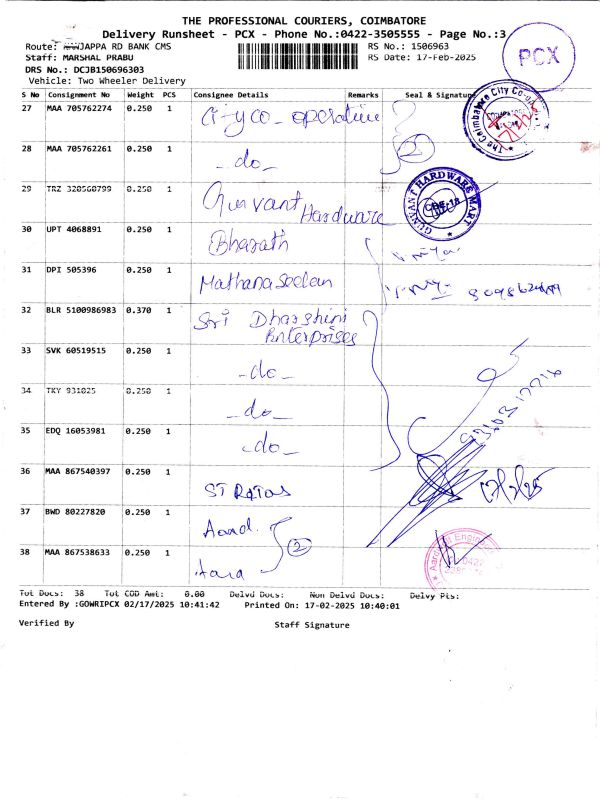 THE PROFESSIONAL COURIERS, COIMBATORE
Delivery Runsheet - PCX - Phone No.:0422-3505555 - Page No.:3
Route: JAPPA RD BANK CMS
RS No.: 1506963
Staff: MARSHAL PRABU
RS Date: 17-Feb-2025
DRS No.: DCJB150696303
Vehicle: Two Wheeler Delivery
PCX
S No Consignment No Weight PCS Consignee Details Remarks Seal & Signature
27 MAA 705762274 0.250 1 operative
28 MAA 705762261 0.250 1 -do-
2
29 TRZ 0.250 1 Gunvant Hardware
GUNVANT HARDWARE MART
30 UPT 4068891 0.250 1 Bharath
31 DPI 505396 0.250 1 Mathanaseelan
32 BLR 5100986983 0.370 1 Sri Dharshini Enterprises
33 SVK 60519515 0.250 1 -do-
34 TKY 931025 0.250 1 -do-
35 EDQ 16053981 0.250 1 -do-
36 MAA 867540397 0.250 1
37 BWD 80227820 0.250 1
2
38 MAA 867538633 0.250 1
Tot Docs: 38 Tot COD Amt: 0.00 Delvd Docs: Non Delvd Docs: Delvy Pts:
Entered By :GOWRIPCX 02/17/2025 10:41:42 Printed On: 17-02-2025 10:40:01
Verified By Staff Signature